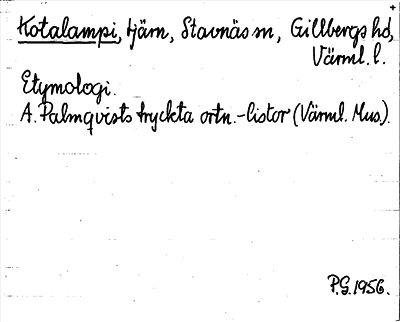 Kotalampi, tjärn, Stavnäs sn, Gillbergs hd,
Värml. l.
Etymologi.
A. Palmqvists tryckta ortn.-listor (Värml. Mus.).
P.G. 1956.